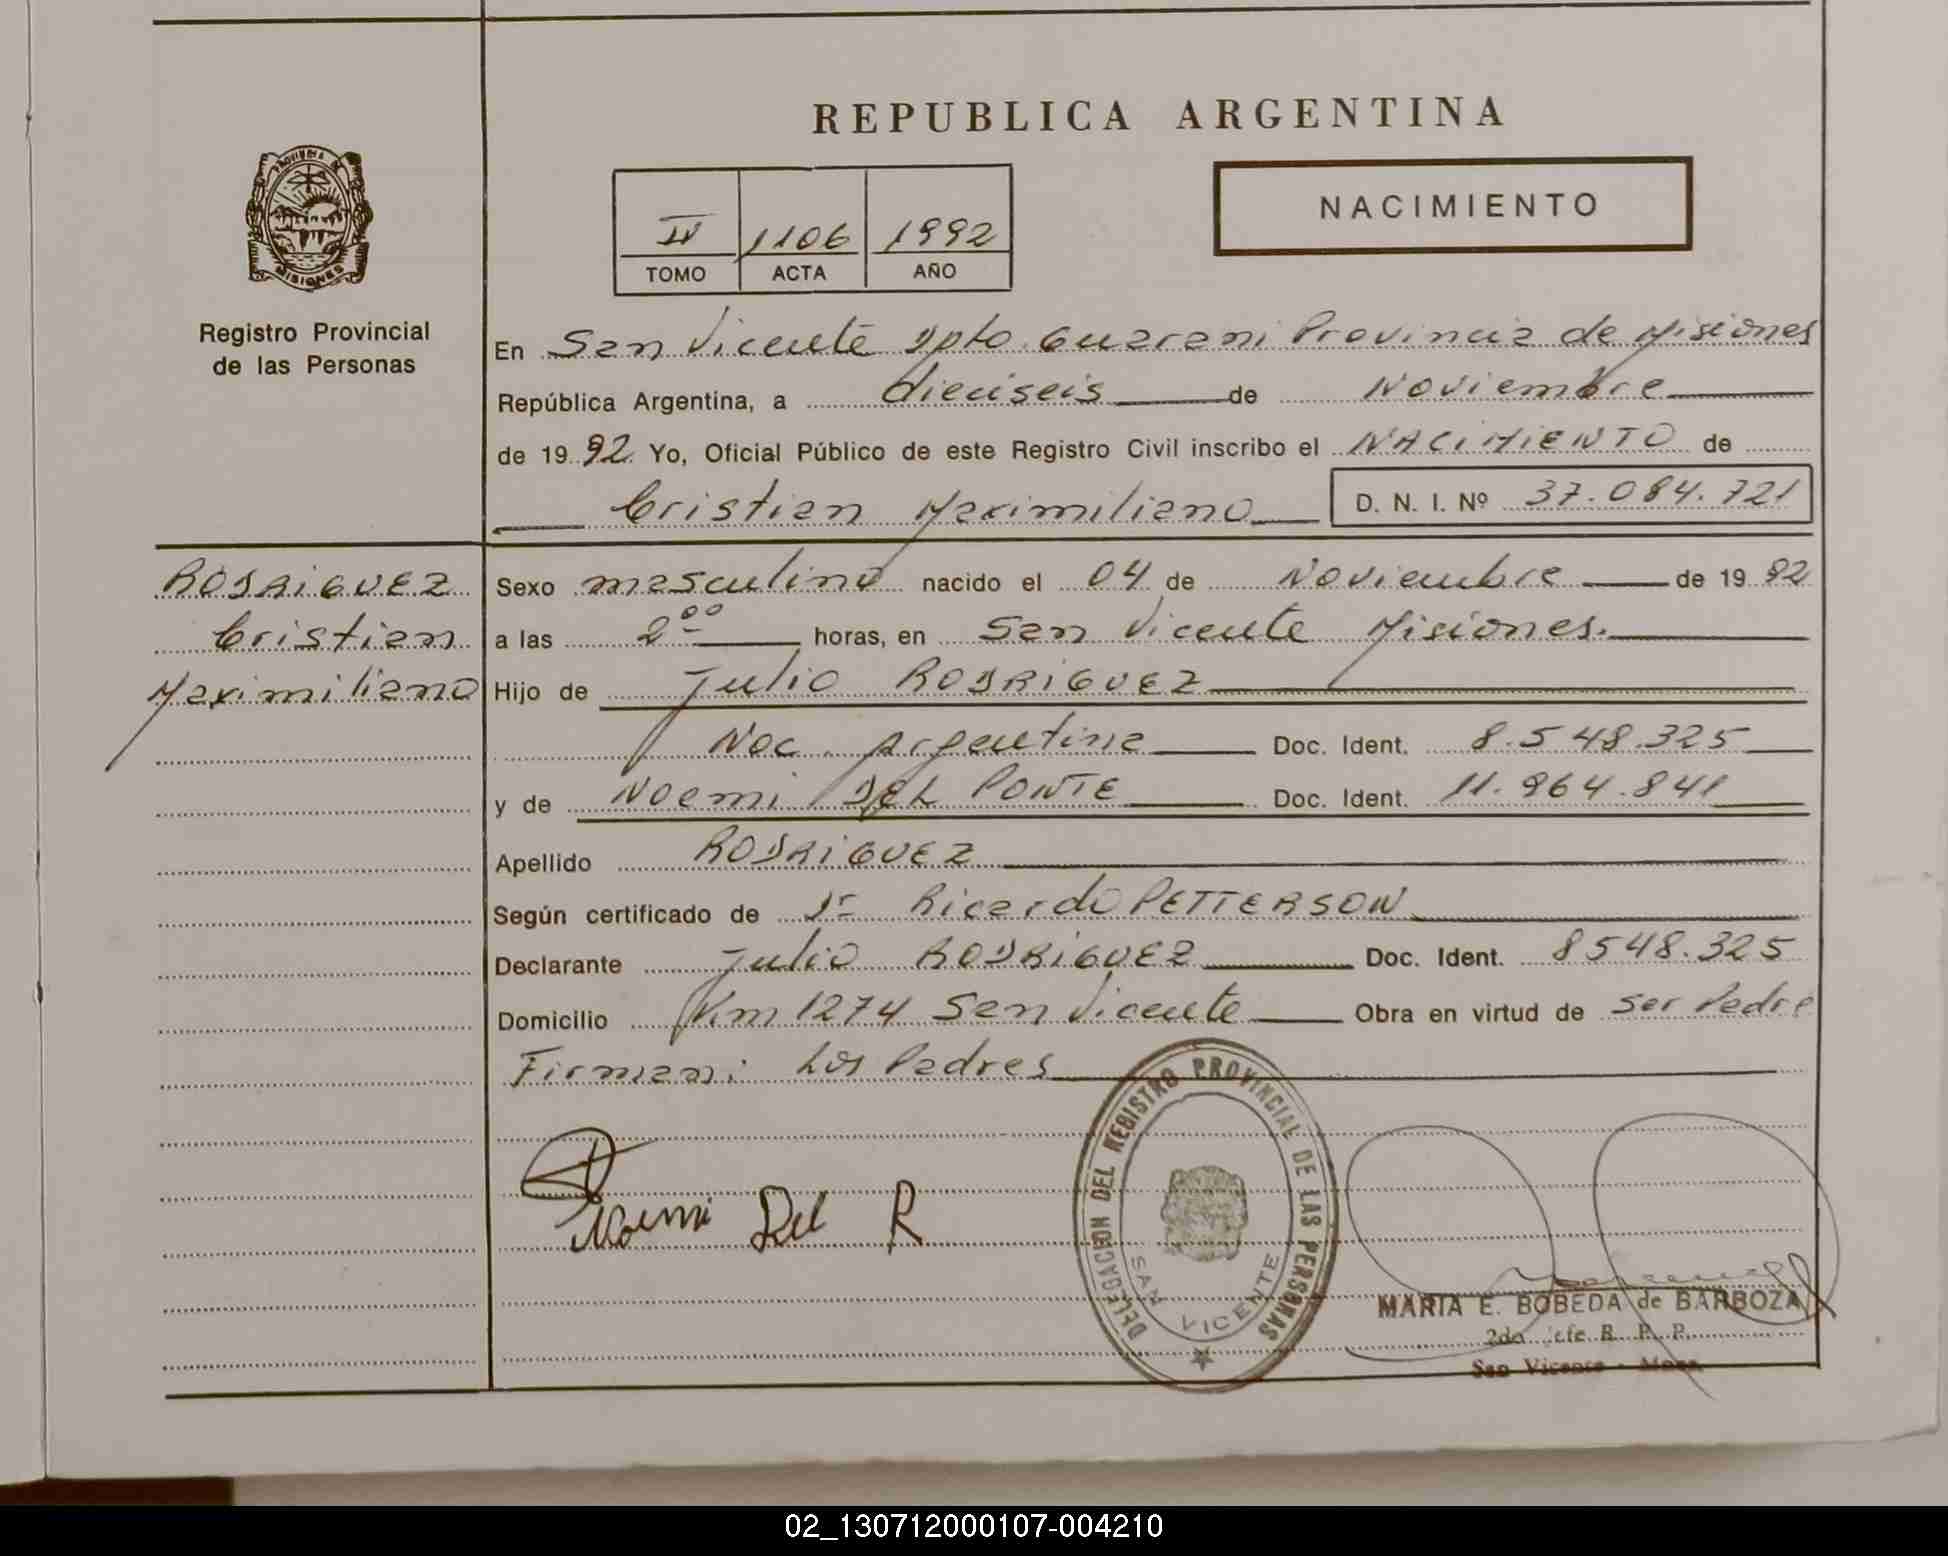 REPUBLICA ARGENTINA
PROVINCIA DE
MISIONES
Registro Provincial
de las Personas
IV 1106 1992
TOMO ACTA AÑO
NACIMIENTO
En San Vicente Dpto. Guarani Provincia de Misiones
República Argentina, a dieciseis de Noviembre
de 19 92 Yo, Oficial Público de este Registro Civil inscribo el NACIMIENTO de
Cristian Maximiliano D. N. I. Nº 37.084.721
RODRIGUEZ
Cristian
Maximiliano
Sexo masculino nacido el 04 de Noviembre de 19 92
a las 2 00 horas, en San Vicente Misiones.
Hijo de Julio RODRIGUEZ
Nac. Argentina Doc. Ident. 8.548.325
y de Noemi DEL PONTE Doc. Ident. 11.964.841
Apellido RODRIGUEZ
Según certificado de Dr Ricardo PETTERSON
Declarante Julio RODRIGUEZ Doc. Ident. 8548.325
Domicilio Km 1274 San Vicente Obra en virtud de ser Padre
Firman: Los Padres
Noemi Del R
DELEGACION DEL REGISTRO PROVINCIAL DE LAS PERSONAS
SAN VICENTE
MARIA E. BOBEDA de BARBOZA
2da Jefe R. P. P.
San Vicente - Mnes.
02_130712000107-004210